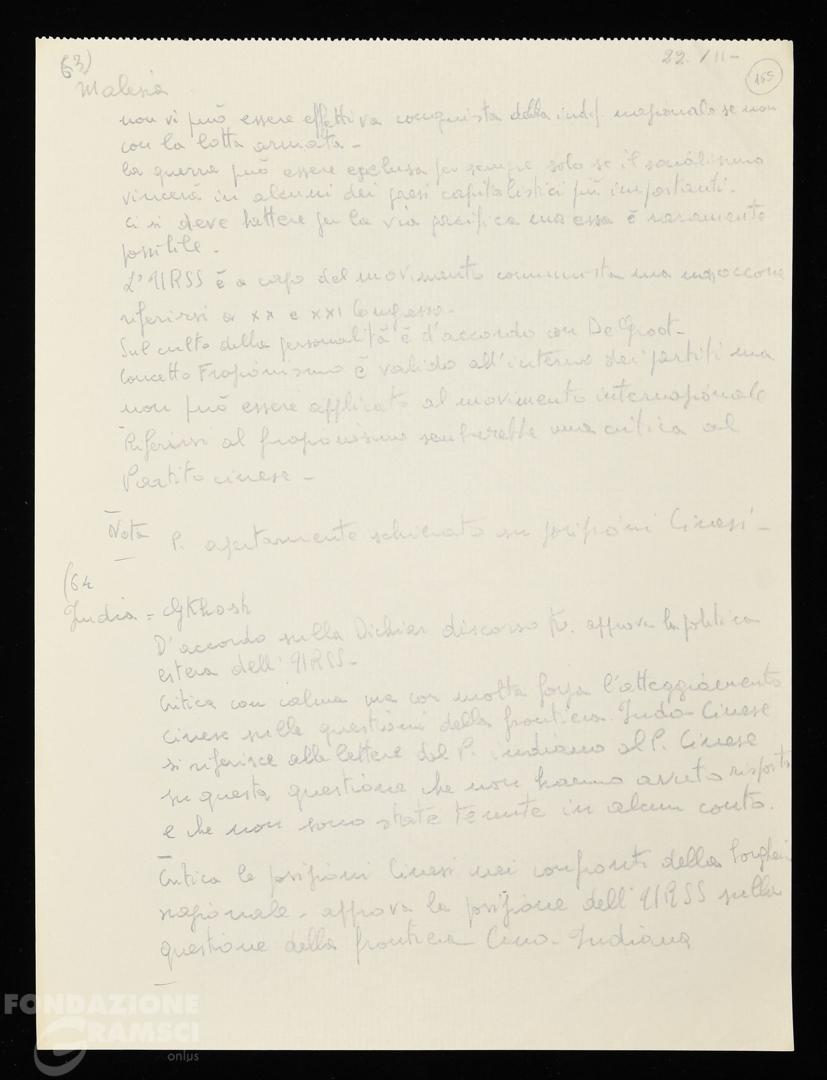 63)
22. /11-
155
Malesia
non vi può essere effettiva conquista della indip. nazionale se non
con la lotta armata -
La guerra può essere esclusa per sempre solo se il socialismo
vincerà in alcuni dei paesi capitalistici più importanti.
Ci si deve battere per la via pacifica ma essa è raramente
possibile.
L'URSS è a capo del movimento comunista ma non occorre
riferirsi a XX e XXI Congresso.
Sul culto della personalità è d'accordo con De Groot-
Concetto Frazionismo è valido all'interno dei partiti ma
non può essere applicato al movimento internazionale
Riferirsi al frazionismo sembrerebbe una critica al
Partito cinese -
Nota P. apertamente schierato su posizioni Cinesi -
(64
India = Gkhosh
D'accordo sulla Dichiar discorso K. approva la politica
estera dell'URSS-
Critica con calma ma con molta forza l'atteggiamento
cinese sulle questioni della frontiera Indo-Cinese
si riferisce alla lettere del P. indiano al P. Cinese
su questa questione che non hanno avuto risposta
e che non sono state tenute in alcun conto.
Critica le posizioni Cinesi nei confronti della borghesia
nazionale - approva la posizione dell'URSS sulla
questione della frontiera Cino-Indiana
FONDAZIONE
GRAMSCI
onlus